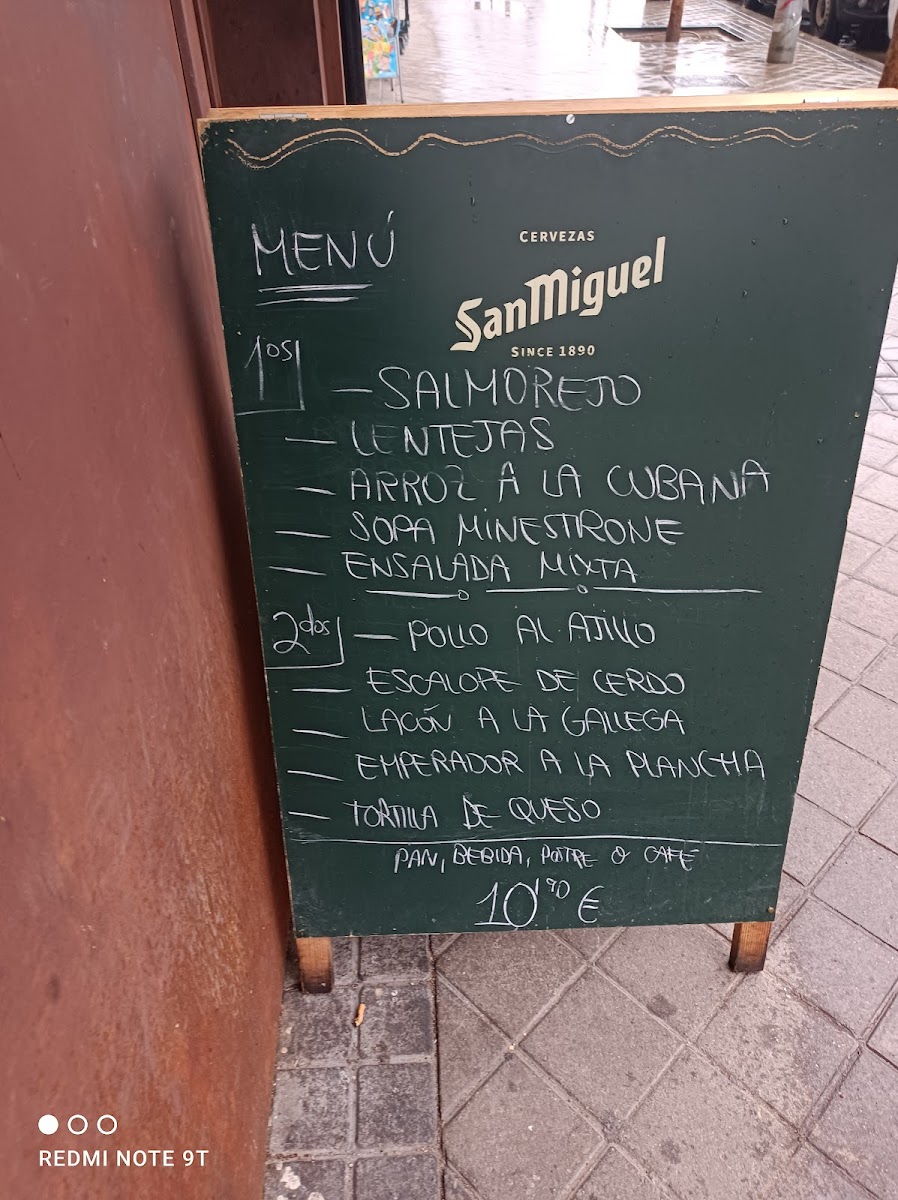 MENÚ
CERVEZAS
SanMiguel
SINCE 1890
1os
— SALMOREJO
— LENTEJAS
— ARROZ A LA CUBANA
— SOPA MINESTRONE
— ENSALADA MIXTA
2dos
— POLLO AL AJILLO
— ESCALOPE DE CERDO
— LACÓN A LA GALLEGA
— EMPERADOR A LA PLANCHA
— TORTILLA DE QUESO
PAN, BEBIDA, POSTRE O CAFÉ
10'90 €
REDMI NOTE 9T